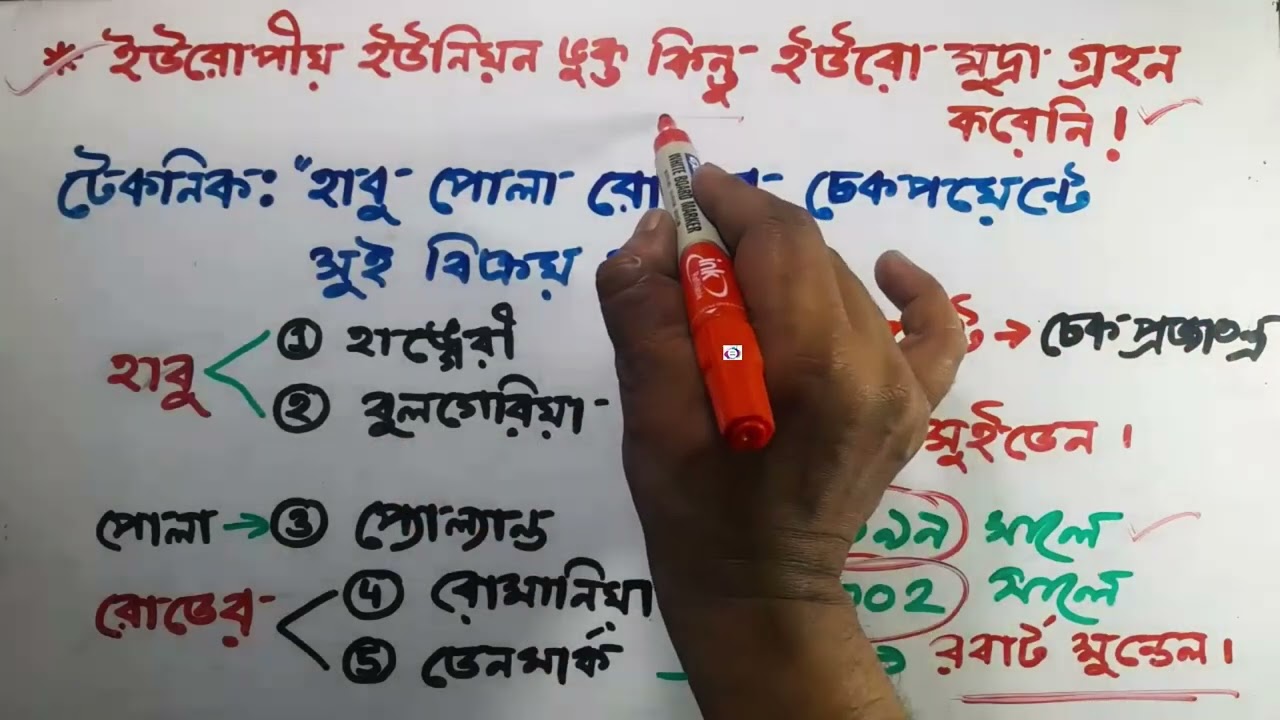 * ইউরোপীয় ইউনিয়ন ভুক্ত কিন্তু ইউরো মুদ্রা গ্রহন
করেনি।
টেকনিক: "হাবু পোলা চেকপয়েন্টে
সুই বিক্রয়
হাবু
① হাঙ্গেরী
② বুলগেরিয়া
→ চেক প্রজাতন্ত্র
সুইডেন।
পোলা → ③ প্যোল্যান্ড
সালে
রোডের
④ রোমানিয়া
⑤ ডেনমার্ক
সালে
রবার্ট মুন্ডেল।
WHITE BOARD MARKER
ink